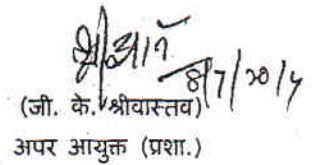 8/7/2014
(जी. के. श्रीवास्तव)
अपर आयुक्त (प्रशा.)